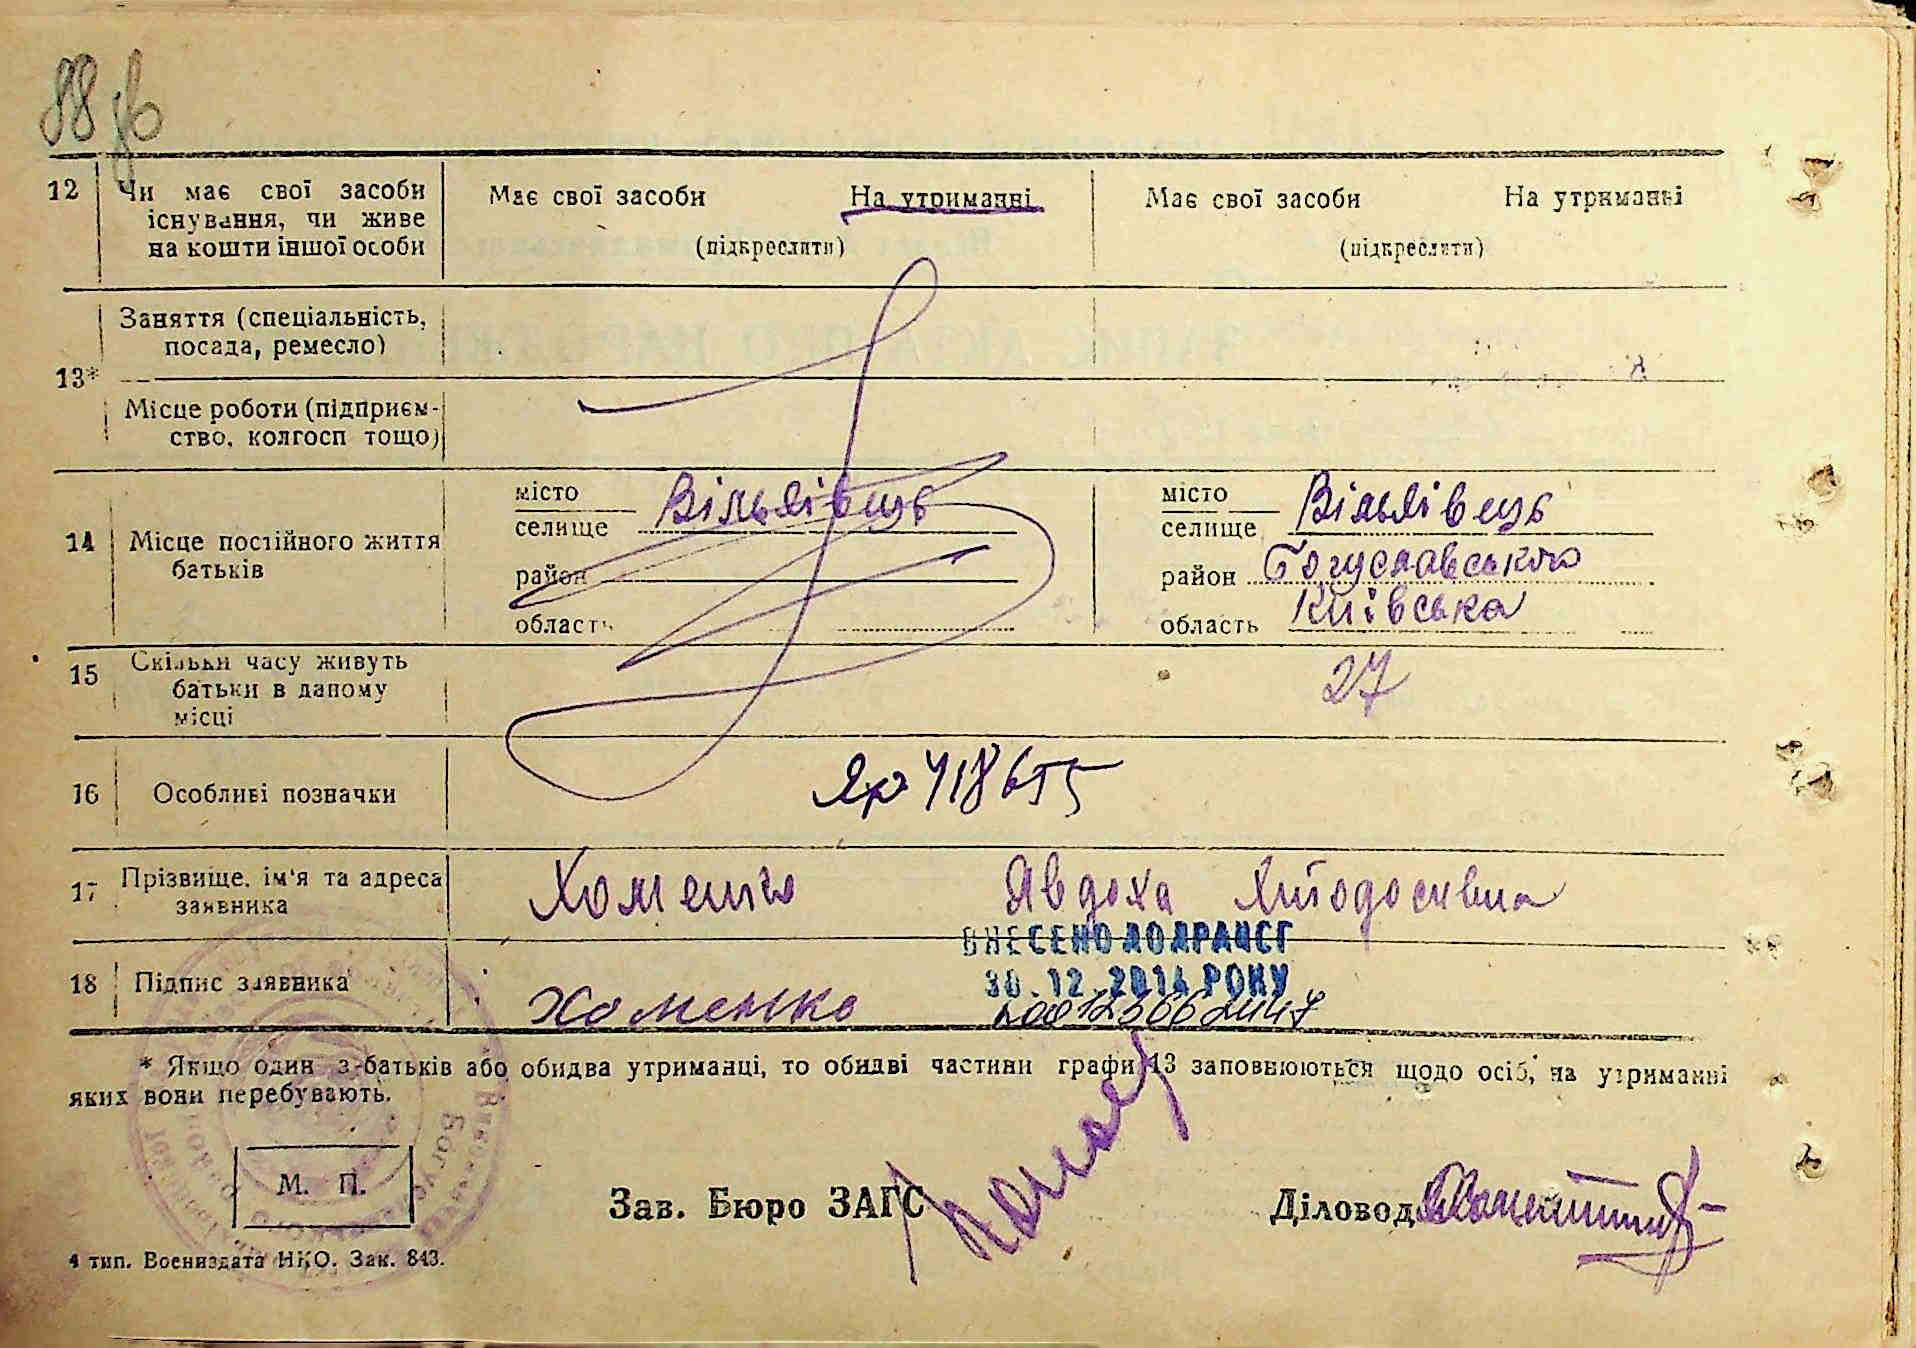 88 зв
12 Чи має свої засоби існування, чи живе на кошти іншої особи
Має свої засоби На утриманні
(підкреслити)
Має свої засоби На утриманні
(підкреслити)
13*
Заняття (спеціальність, посада, ремесло)
Місце роботи (підприєм-
ство, колгосп тощо)
14 Місце постійного життя батьків
місто
селище Вільхівець
район
область
місто
селище Вільхівець
район Богуславського
область Київська
15 Скільки часу живуть батьки в даному місці
27
16 Особливі позначки
718655
17 Прізвище, ім'я та адреса заявника
Хоменко Явдоха
ВНЕСЕНО ДО ДРАЦСГ
30.12.2014 РОКУ
18 Підпис заявника
Хоменко
00012366
* Якщо один з батьків або обидва утриманці, то обидві частини графи 13 заповнюються щодо осіб, на утриманні
яких вони перебувають.
М. П.
Зав. Бюро ЗАГС
Діловод
4 тип. Воениздата НКО. Зак. 843.